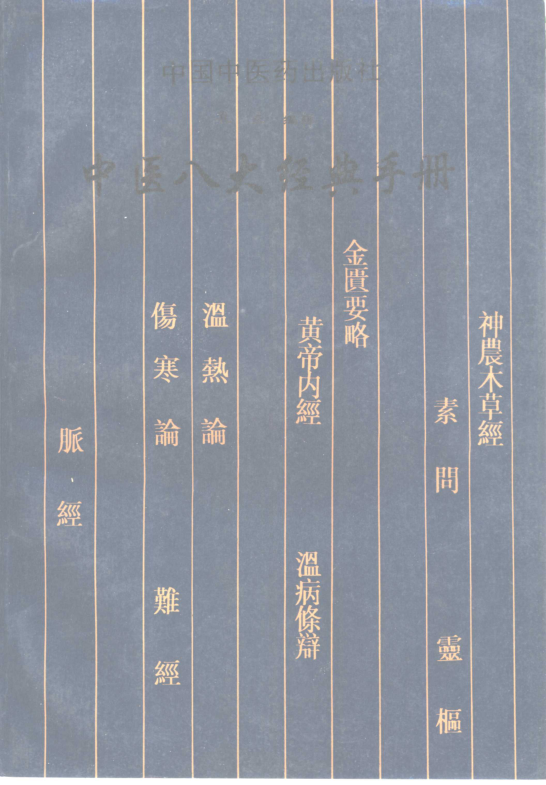 中国中医药出版社
中医八大经典手册
神農本草經
素問
靈樞
金匱要略
黄帝内經
溫病條辯
溫熱論
傷寒論
難經
脈經